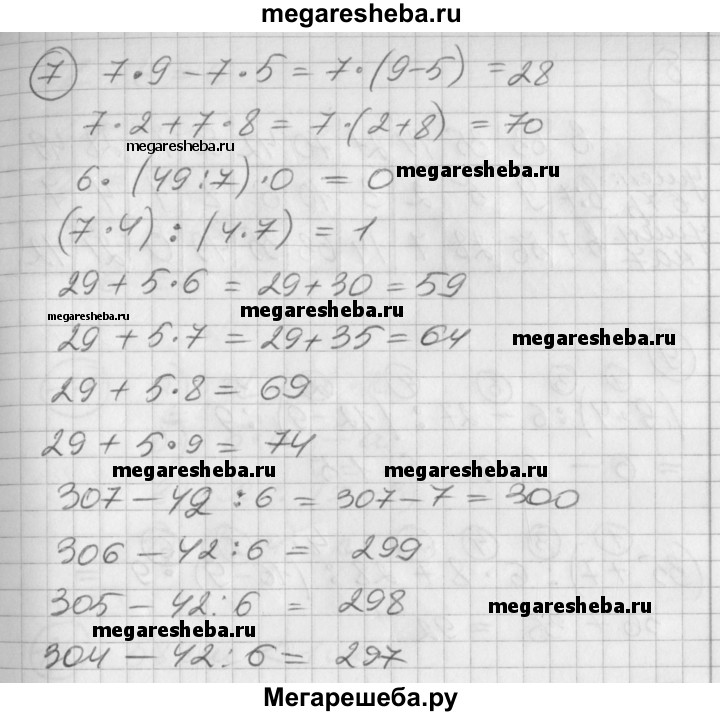 megaresheba.ru
7 7·9-7·5=7·(9-5)=28
7·2+7·8=7·(2+8)=70
megaresheba.ru
6·(49:7)·0=0 megaresheba.ru
(7·4):(4·7)=1
29+5·6=29+30=59
megaresheba.ru megaresheba.ru
29+5·7=29+35=64 megaresheba.ru
29+5·8=69
29+5·9=74
megaresheba.ru megaresheba.ru
307-42:6=307-7=300
306-42:6=299
305-42:6=298 megaresheba.ru
megaresheba.ru
304-42:6=297
Мегарешеба.ру